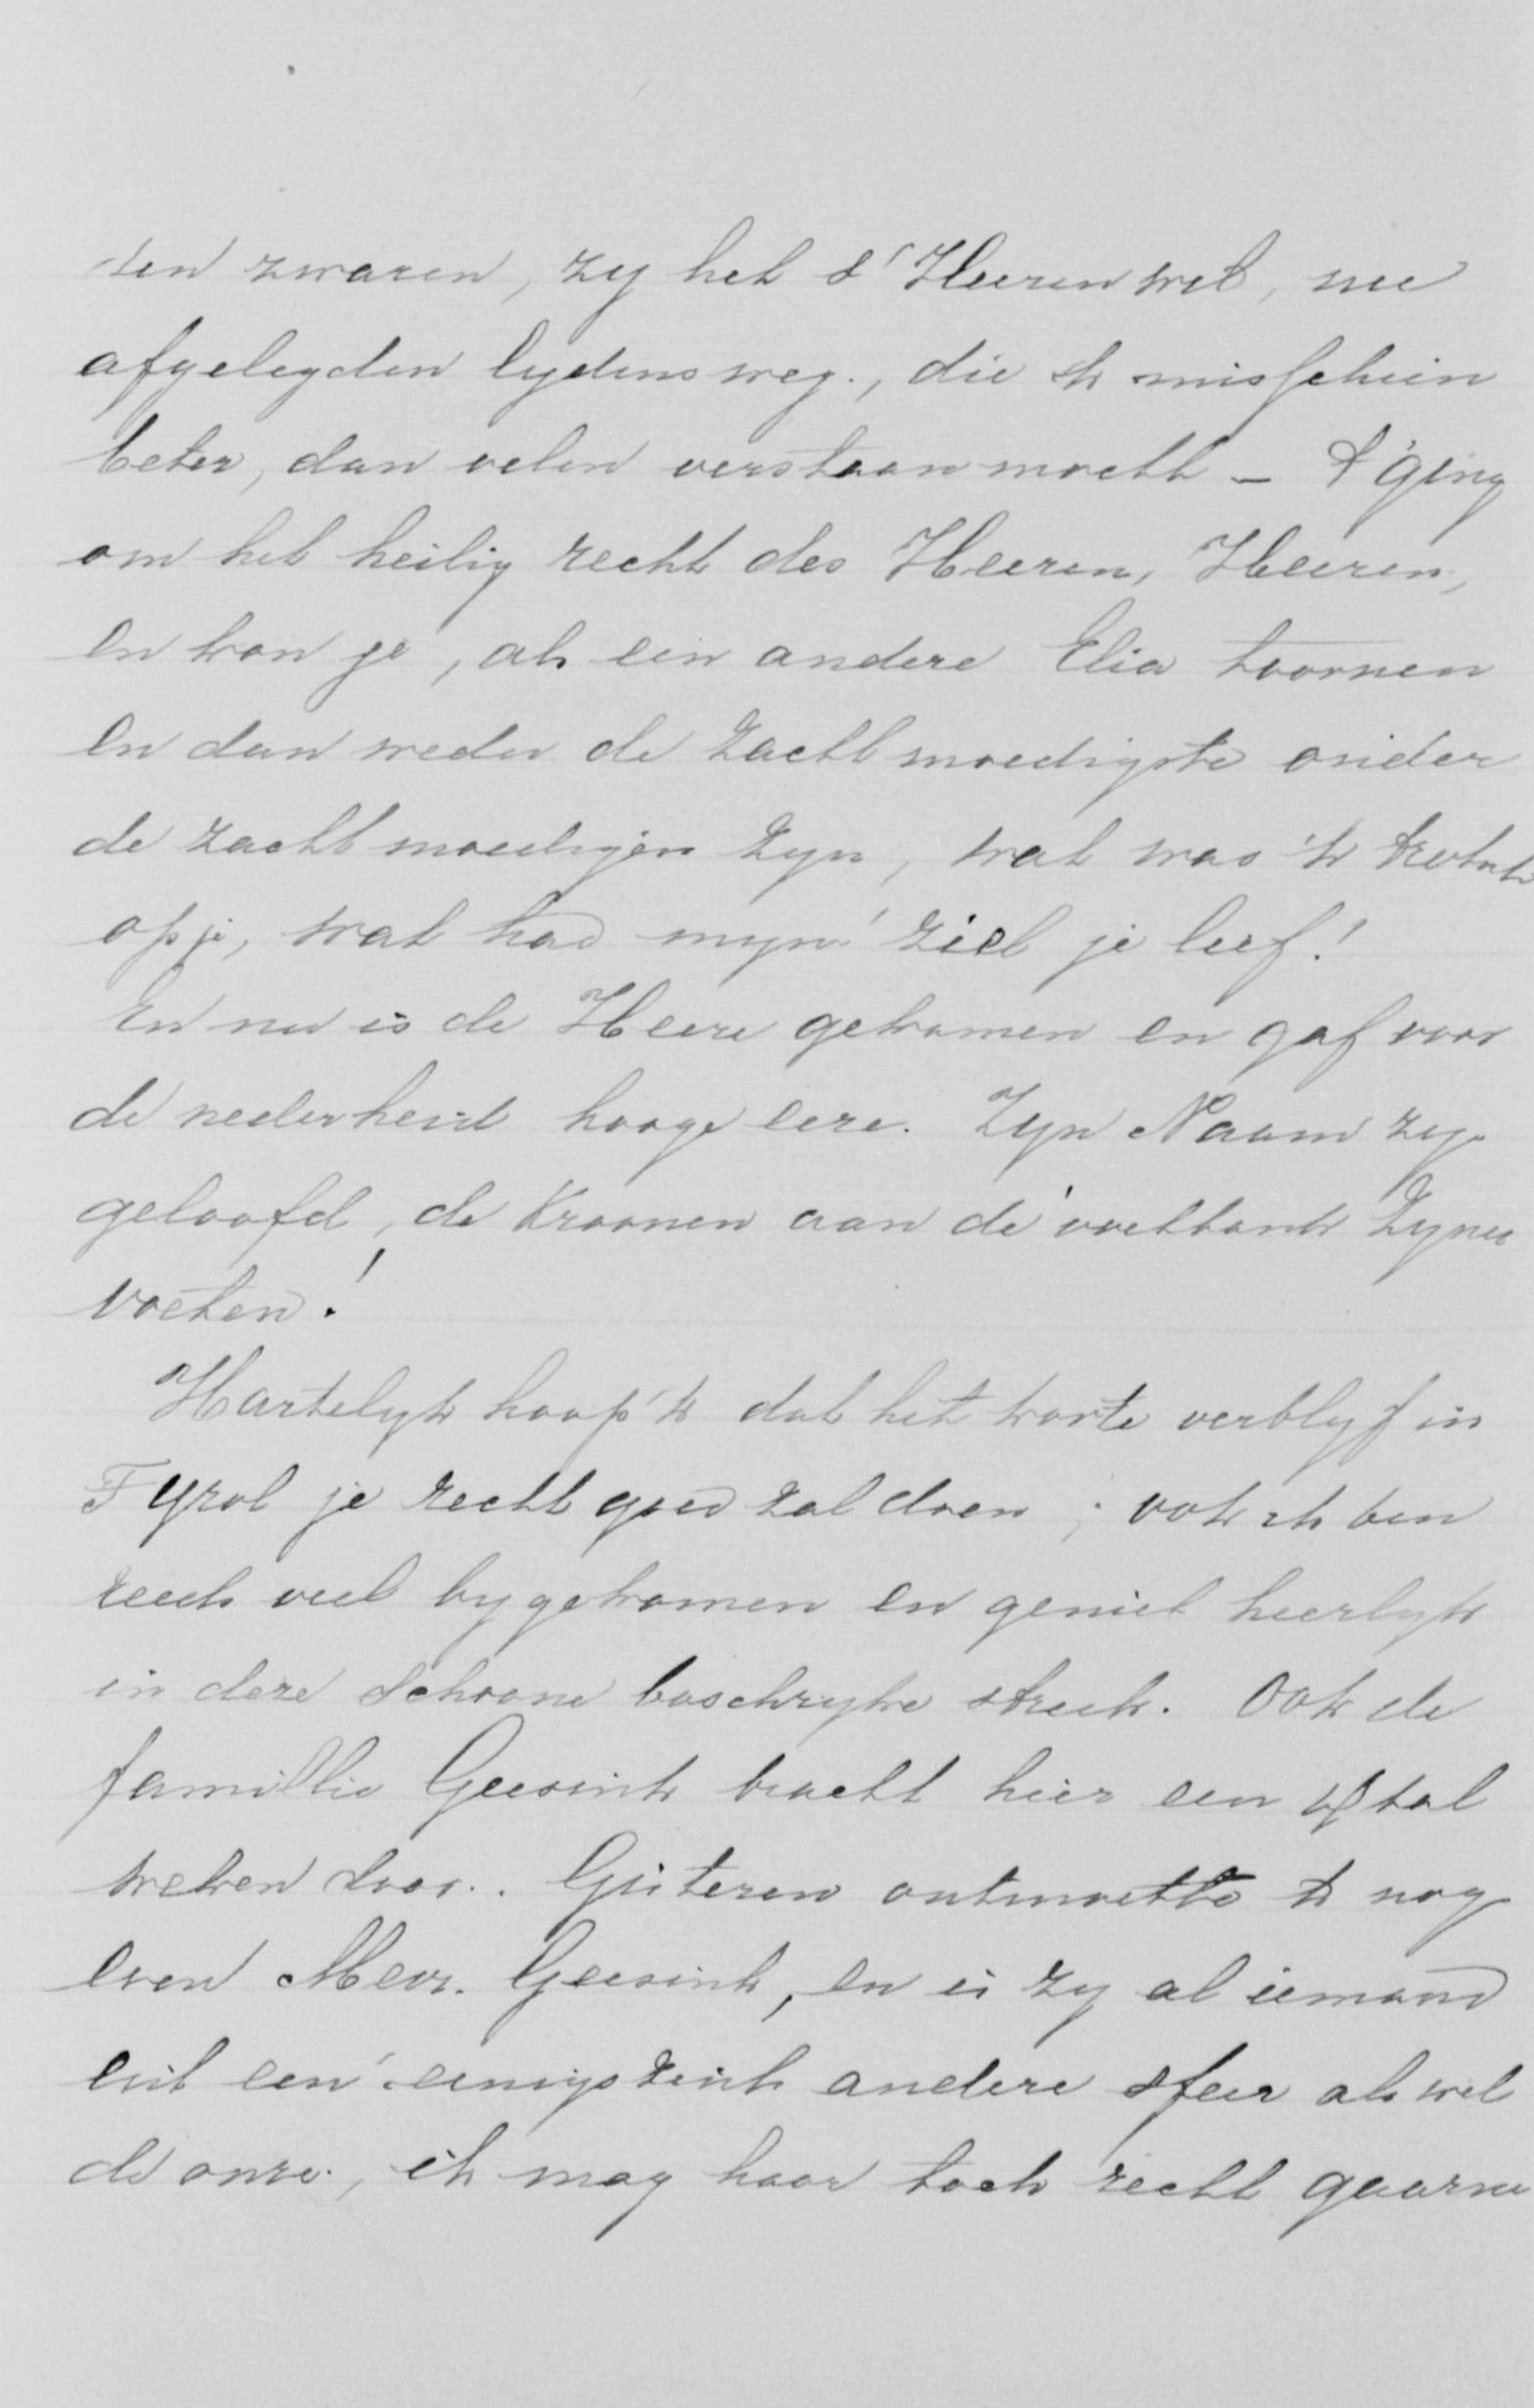 den zwaren, zy het s' Heeren wil, nu
afgelegden lydensweg., die 'k misschien
beter, dan velen verstaan mocht – 't ging
om het heilig recht des Heeren, Heeren,
en kon je, als een andere Elia toornen
en dan weder de zachtmoedigste onder
de zachtmoedigen zyn, wat was 'k trotsch
op je, wat had myn ziel je lief!
En nu is de Heere gekomen en gaf voor
de nederheid hooge eere. Zyn Naam zy
geloofd, de kroonen aan de voetbank Zyner
voeten!
Hartelyk hoop 'k dat het korte verblyf in
Tyrol je recht goed zal doen; ook ik ben
reeds veel bygekomen en geniet heerlyk
in deze schoone boschryke streek. Ook de
famillie Geesink bracht hier een tal
weken door.. Gisteren ontmoette 'k nog
even Mevr. Geesink, en is zy al iemand
uit een eenigszins andere sfeer als wel
de onze, ik mag haar toch recht gaarne